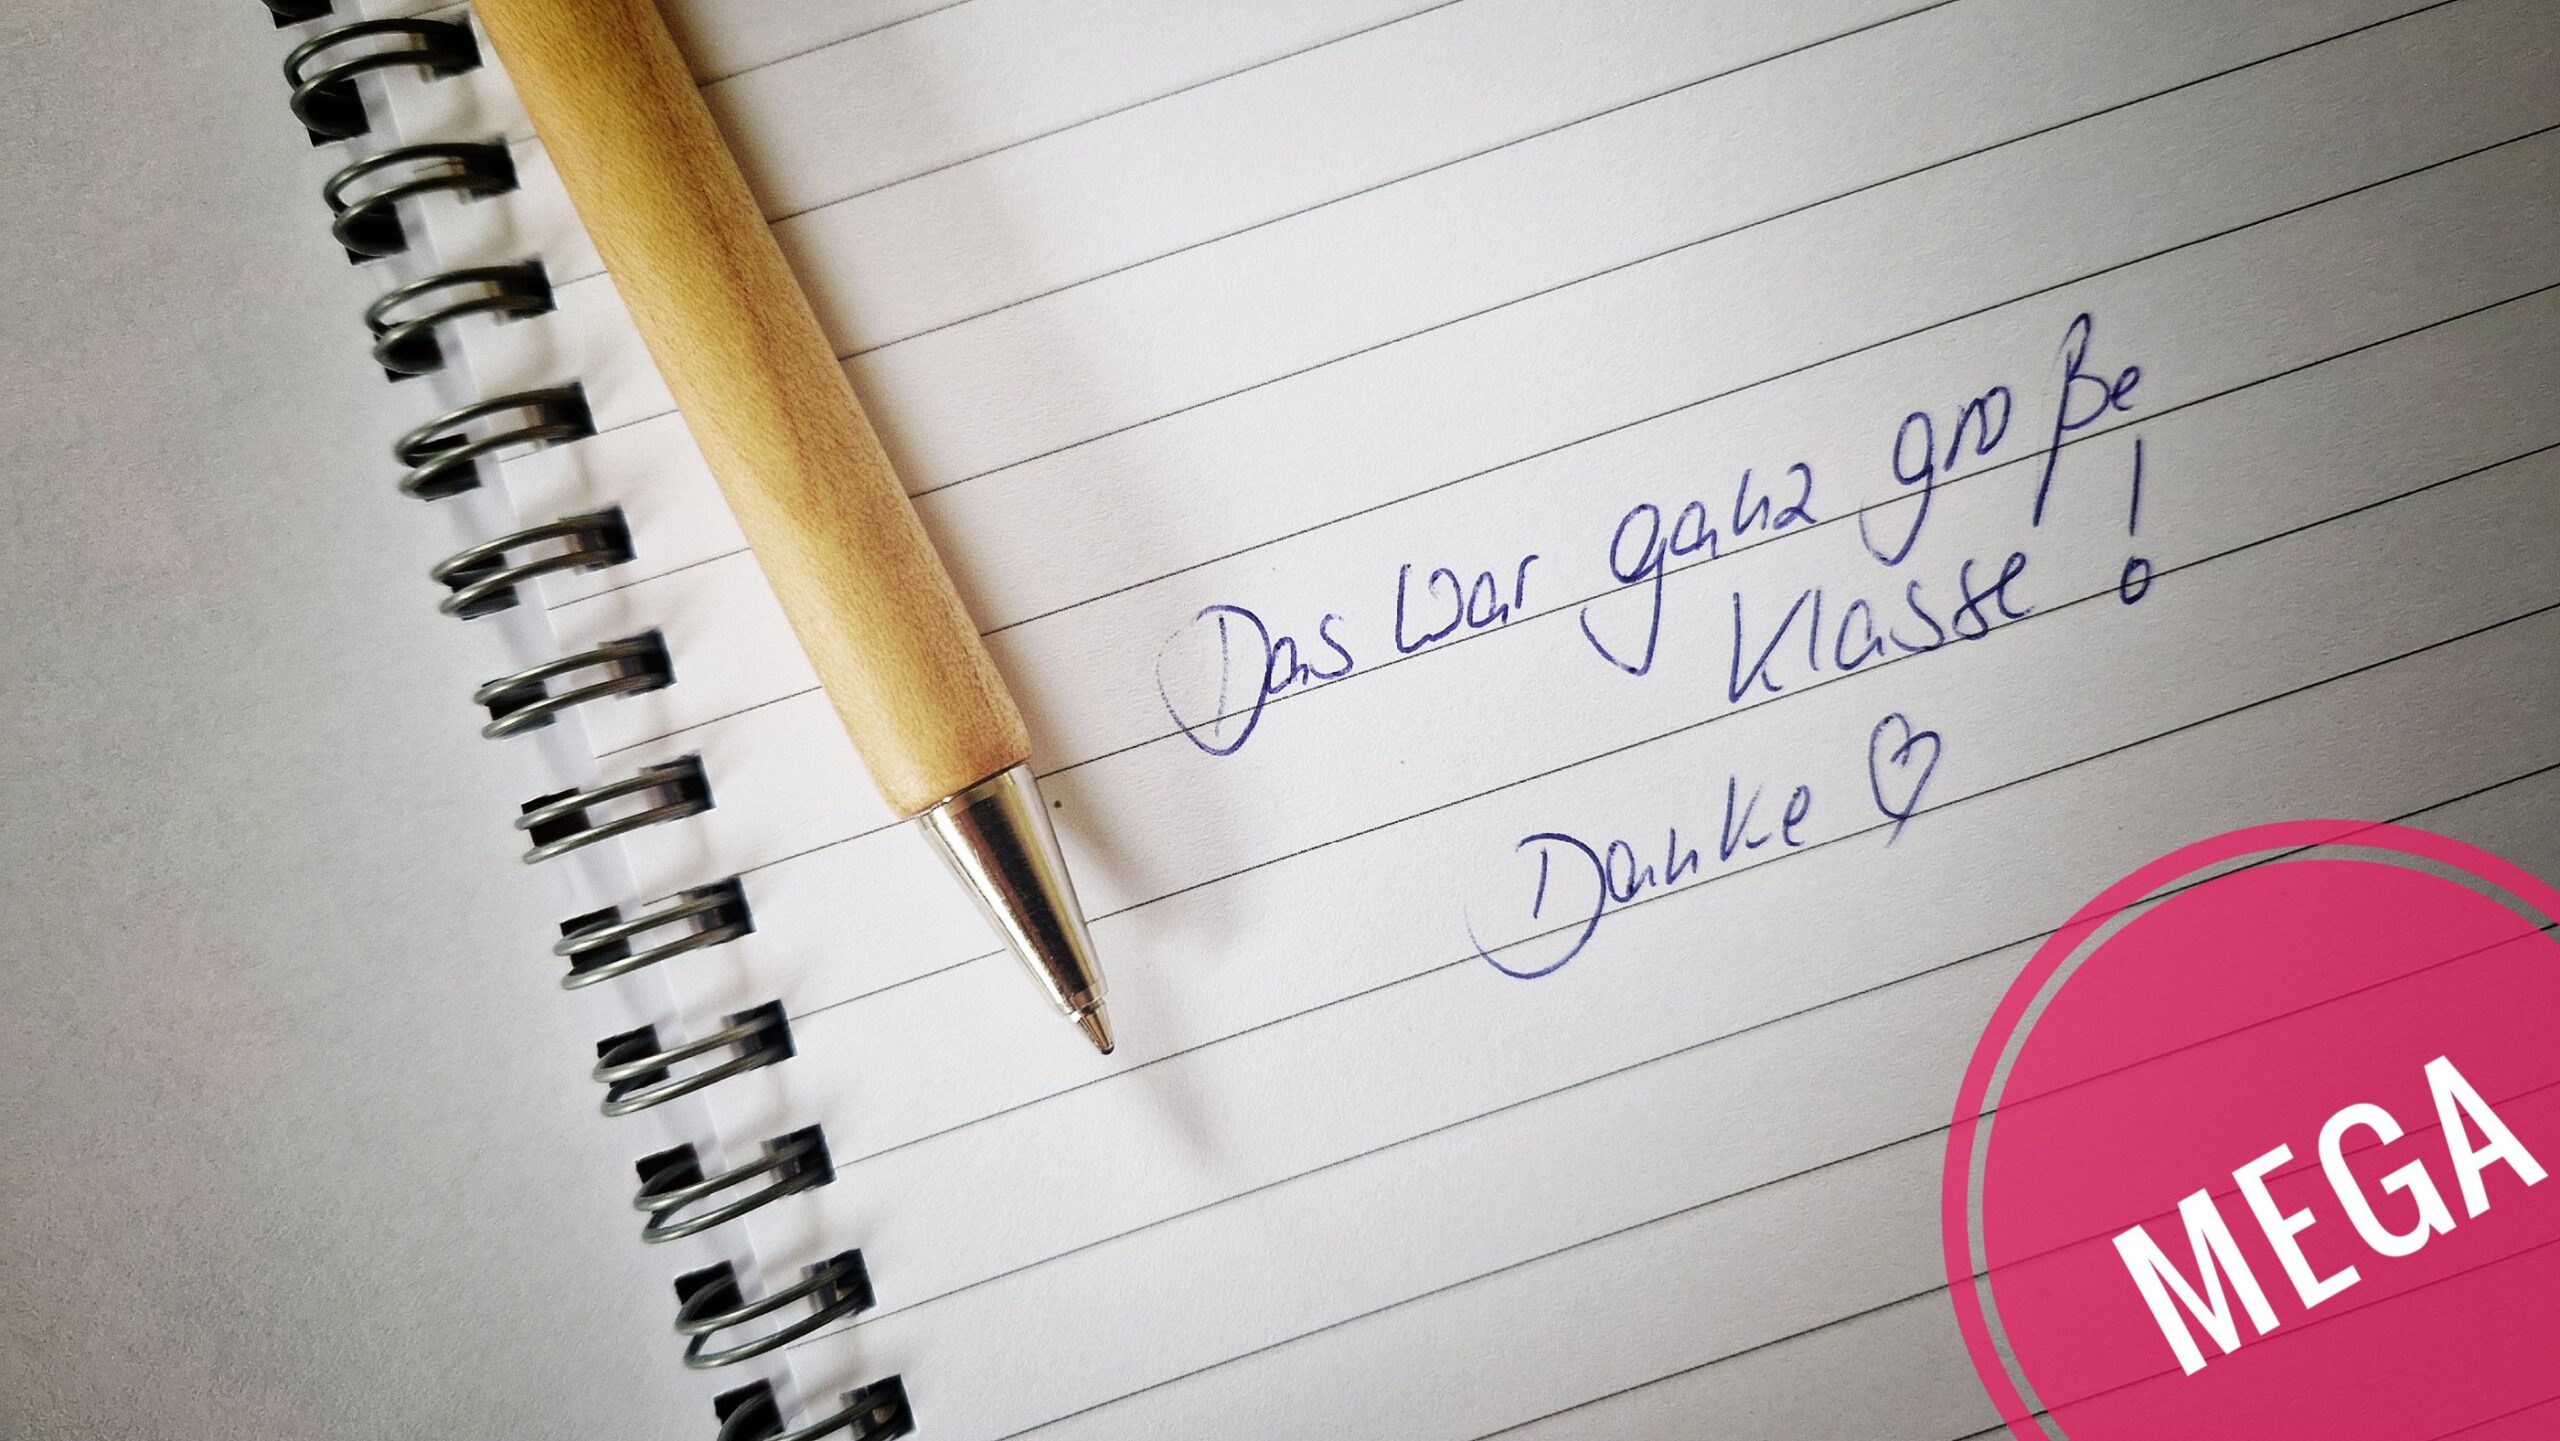 Das war ganz große
Klasse!
Danke ♡
MEGA